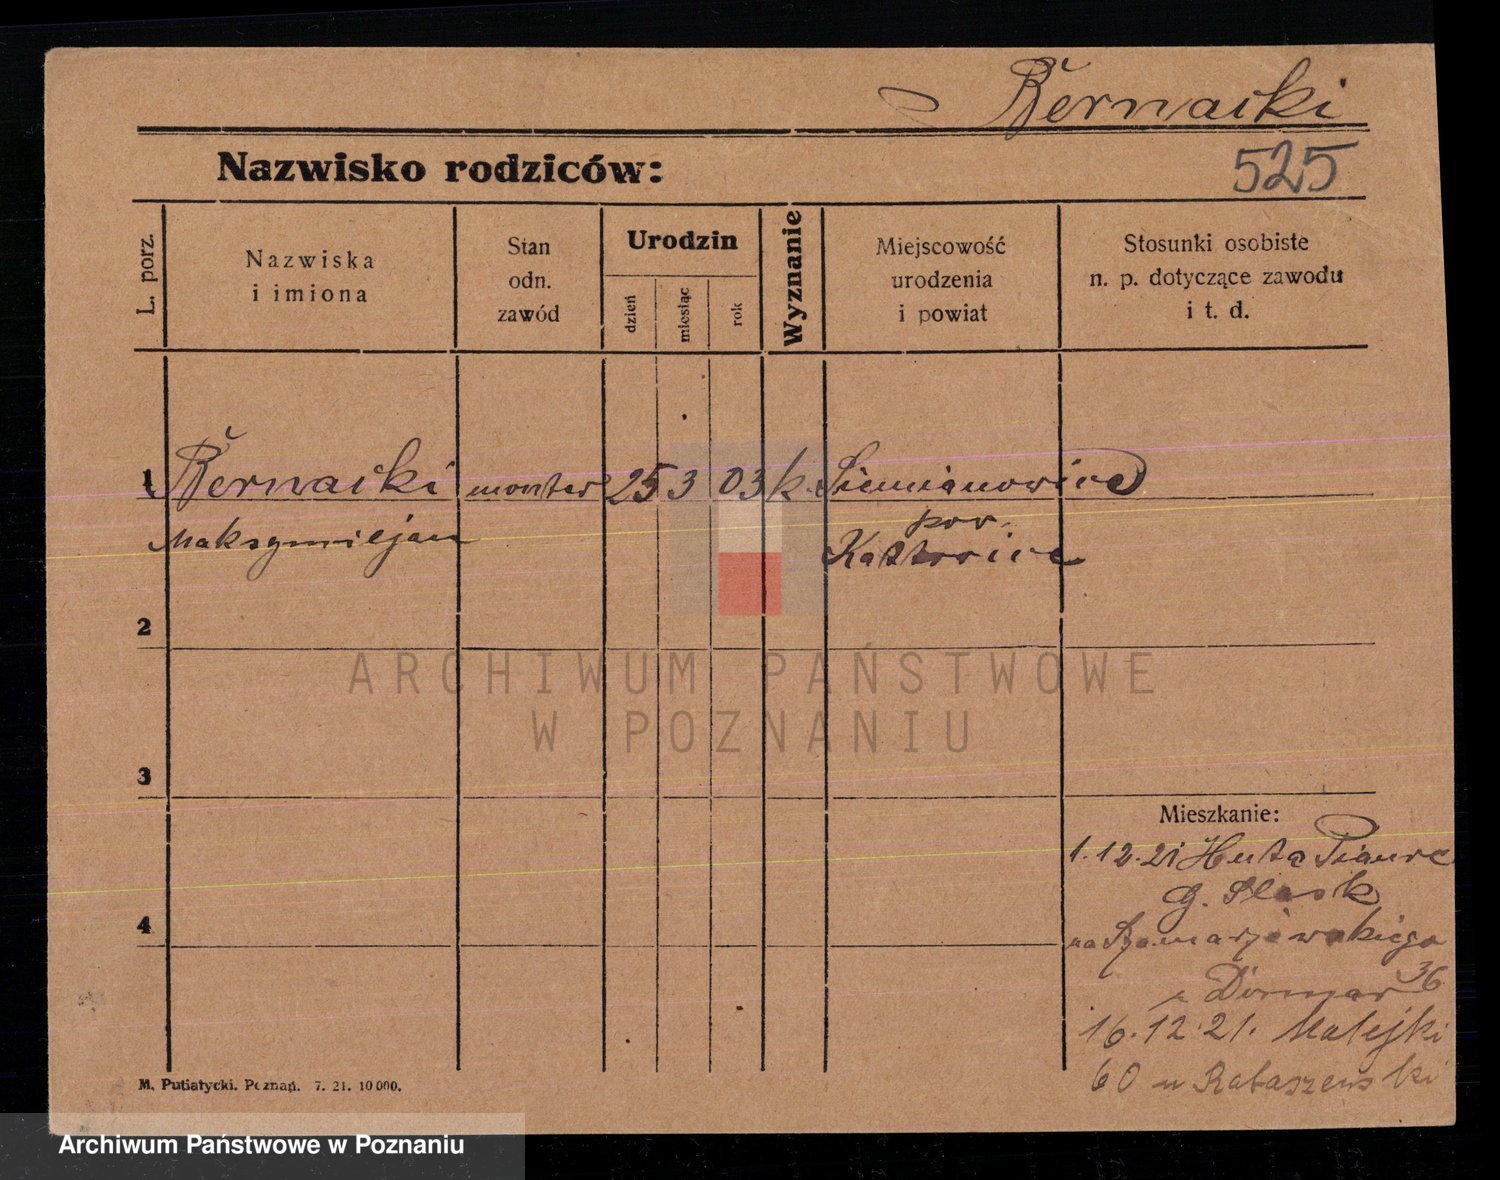 Bernacki
Nazwisko rodziców:
525
L. porz.
Nazwiska
i imiona
Stan
odn.
zawód
Urodzin
dzień
miesiąc
rok
Wyznanie
Miejscowość
urodzenia
i powiat
Stosunki osobiste
n. p. dotyczące zawodu
i t. d.
1 Bernacki monter 25 3 03 k. Siemianowice
Maksymiljan
pow.
Katowice
2
3
4
Mieszkanie:
1.12.21 Huta
G. Śląsk
na Szamarzewskiego
36
16.12.21. Matejki
60 u Rataszewski
M. Putiatycki. Poznań. 7. 21. 10 000.
ARCHIWUM PAŃSTWOWE
W POZNANIU
Archiwum Państwowe w Poznaniu